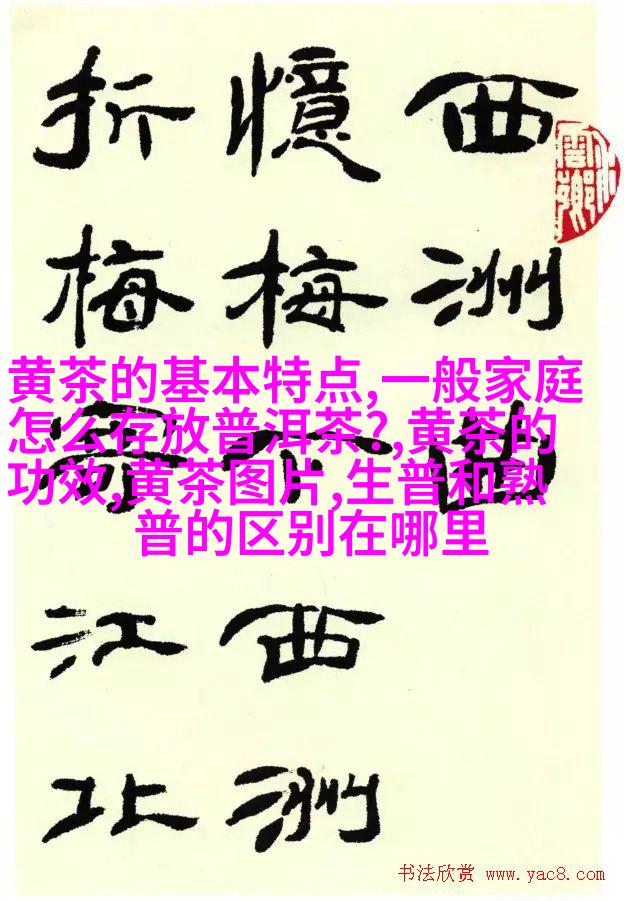 西洲曲
憶梅下西洲
折梅寄江北
黄茶的基本特点,一般家庭
怎么存放普洱茶?,黄茶的
功效,黄茶图片,生普和熟
普的区别在哪里
书法欣赏 www.yac8.com